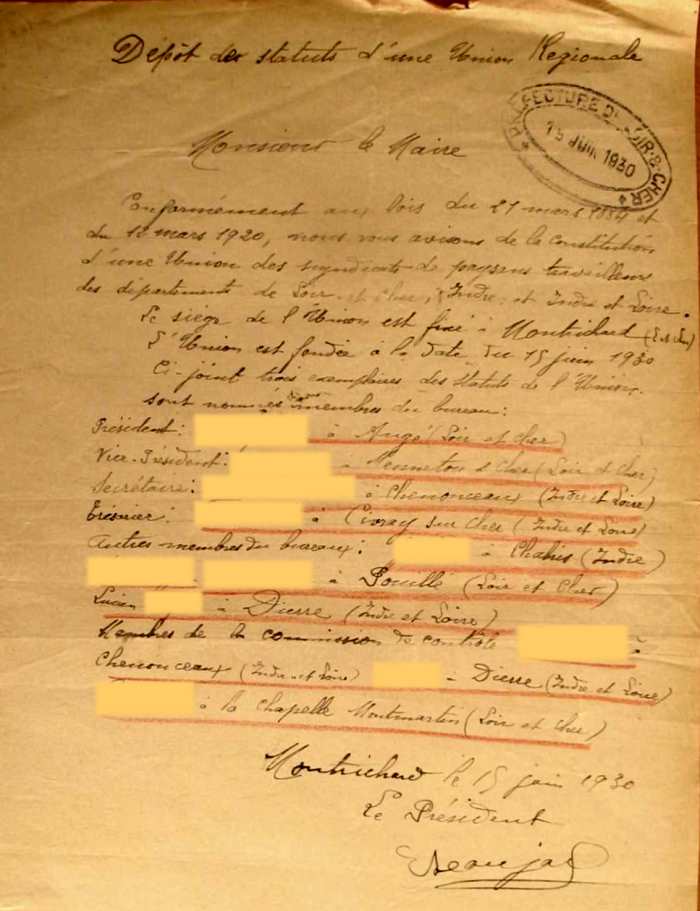 Dépôt des statuts d'une Union Régionale
PREFECTURE DE LOIR-&-CHER
15 JUIN 1930
Monsieur le Maire
Conformément aux lois du 21 mars 1884 et
du 12 mars 1920, nous vous avisons de la constitution
d'une Union des syndicats de paysans travailleurs
des departements de Loir et Cher, Indre et Indre et Loire.
Le siège de l'Union est fixé à Montrichard
L'Union est fondée à la date du 15 juin 1930
Ci-joint trois exemplaires des statuts de l'Union.
sont nommés membres du bureau:
Président: à Angé (Loir et Cher)
Vice-Président: à Mennetou s Cher (Loir et Cher)
Secrétaire: à Chenonceaux (Indre et Loire)
Trésorier: à Civray sur Cher (Indre et Loire)
Autres membres du bureau: à Chabris (Indre)
à Pouillé (Loir et Cher)
Lucien à Dierre (Indre et Loire)
Membres de la commission de contrôle à
Chenonceaux (Indre et Loire) à Dierre (Indre et Loire)
à la Chapelle Montmartin (Loir et Cher)
Montrichard le 15 juin 1930
Le Président